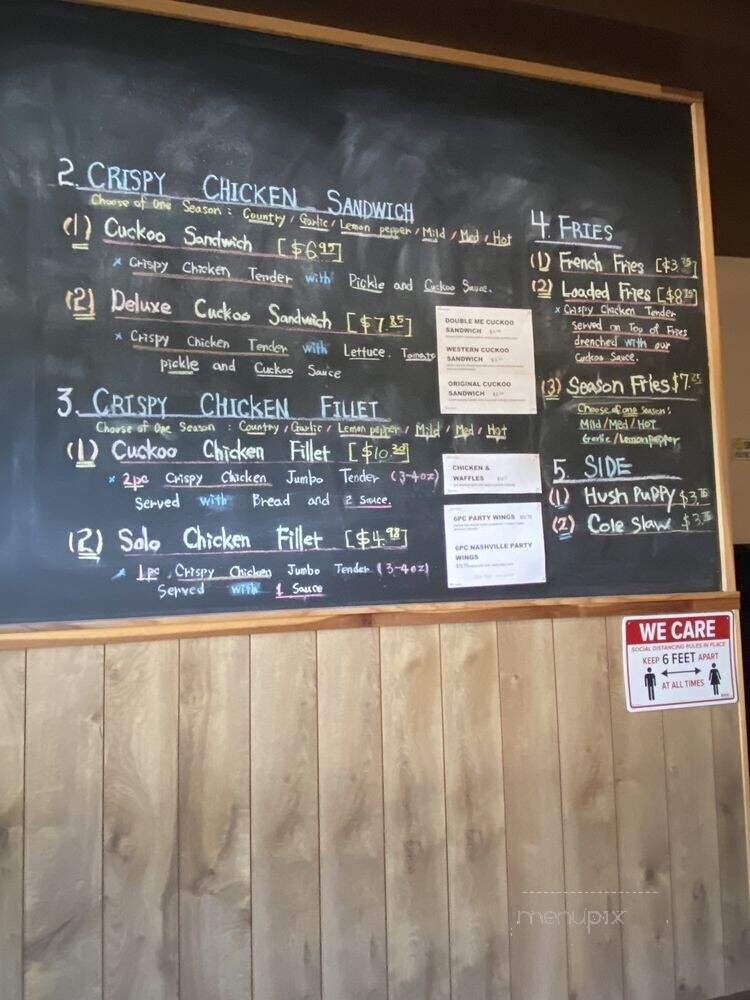 2. CRISPY CHICKEN SANDWICH
Choose of One Season : Country / Garlic / Lemon pepper / Mild / Med / Hot
(1) Cuckoo Sandwich [$6.95]
* Crispy Chicken Tender with Pickle and Cuckoo Sauce.
(2) Deluxe Cuckoo Sandwich [$7.85]
* Crispy Chicken Tender with Lettuce. Tomato
pickle and Cuckoo Sauce
3. CRISPY CHICKEN FILLET
Choose of One Season : Country / Garlic / Lemon pepper / Mild / Med / Hot
(1) Cuckoo Chicken Fillet
* 2pc Crispy Chicken Jumbo Tender (3-4oz)
Served with Bread and 2 sauce.
(2) Solo Chicken Fillet [$4.98]
* 1pc Crispy Chicken Jumbo Tender (3-4oz)
Served with 1 Sauce
DOUBLE ME CUCKOO
SANDWICH
WESTERN CUCKOO
SANDWICH
ORIGINAL CUCKOO
SANDWICH
CHICKEN &
WAFFLES
6PC PARTY WINGS
6PC NASHVILLE PARTY
WINGS
4. FRIES
(1) French Fries
(2) Loaded Fries
* Crispy Chicken Tender
served on Top of Fries
drenched with our
Cuckoo Sauce.
(3) Season Fries $7.25
Choose of one Season:
Mild/Med/HOT
Garlic/Lemonpepper
5. SIDE
(1) Hush Puppy
(2) Cole Slaw
WE CARE
SOCIAL DISTANCING RULES IN PLACE
KEEP 6 FEET APART
AT ALL TIMES
menupix